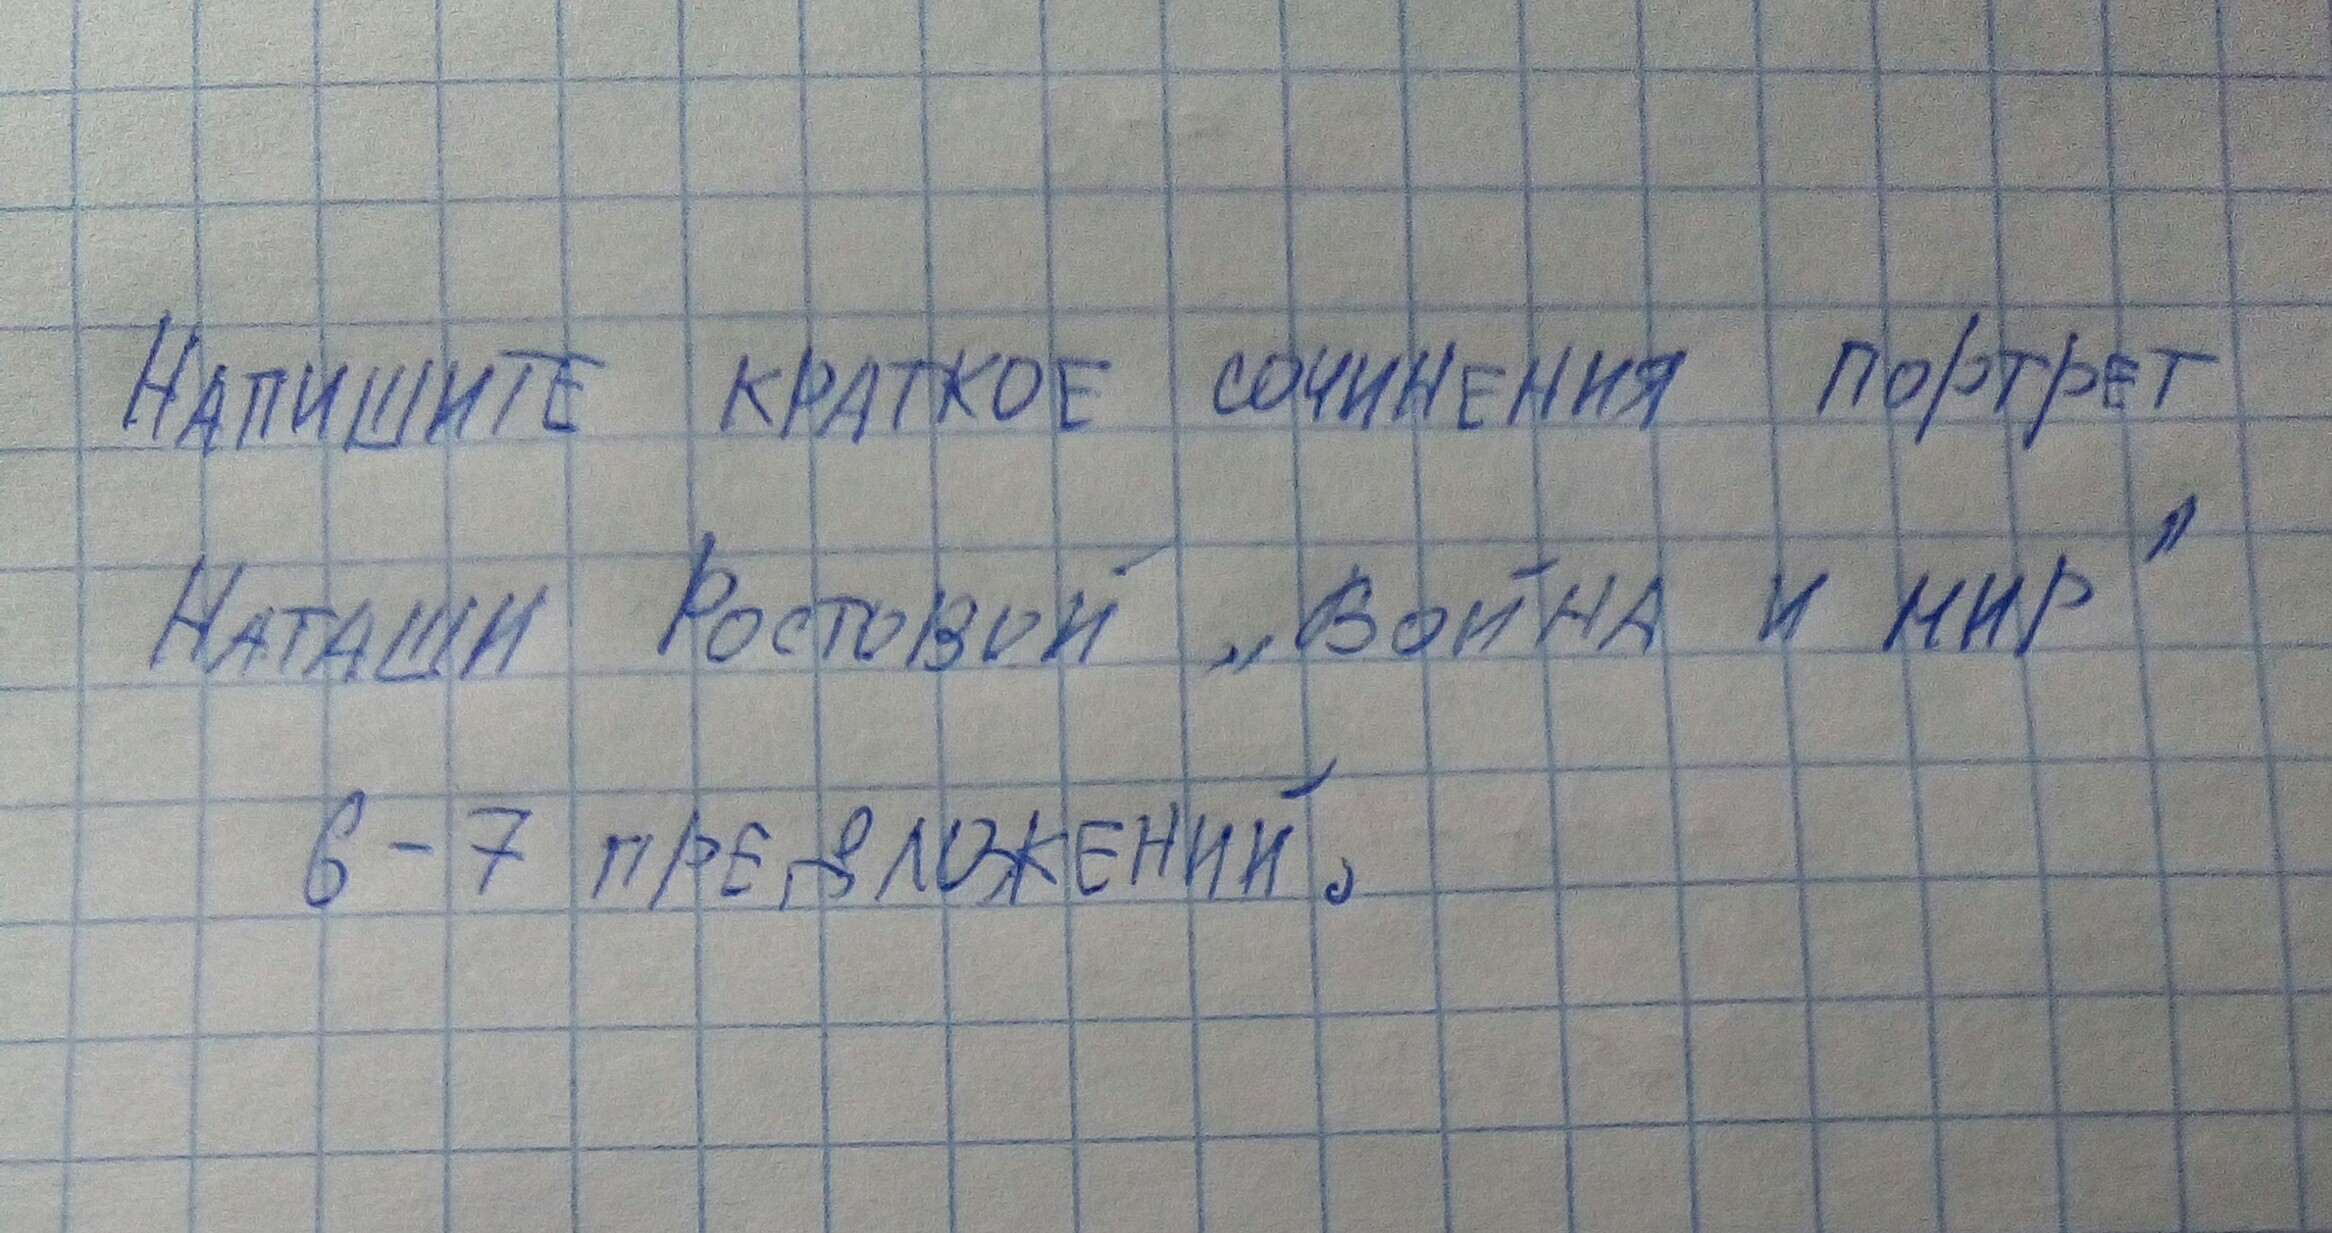 Напишите краткое сочинения портрет
Наташи Ростовой „Война и мир”
6-7 предложений.